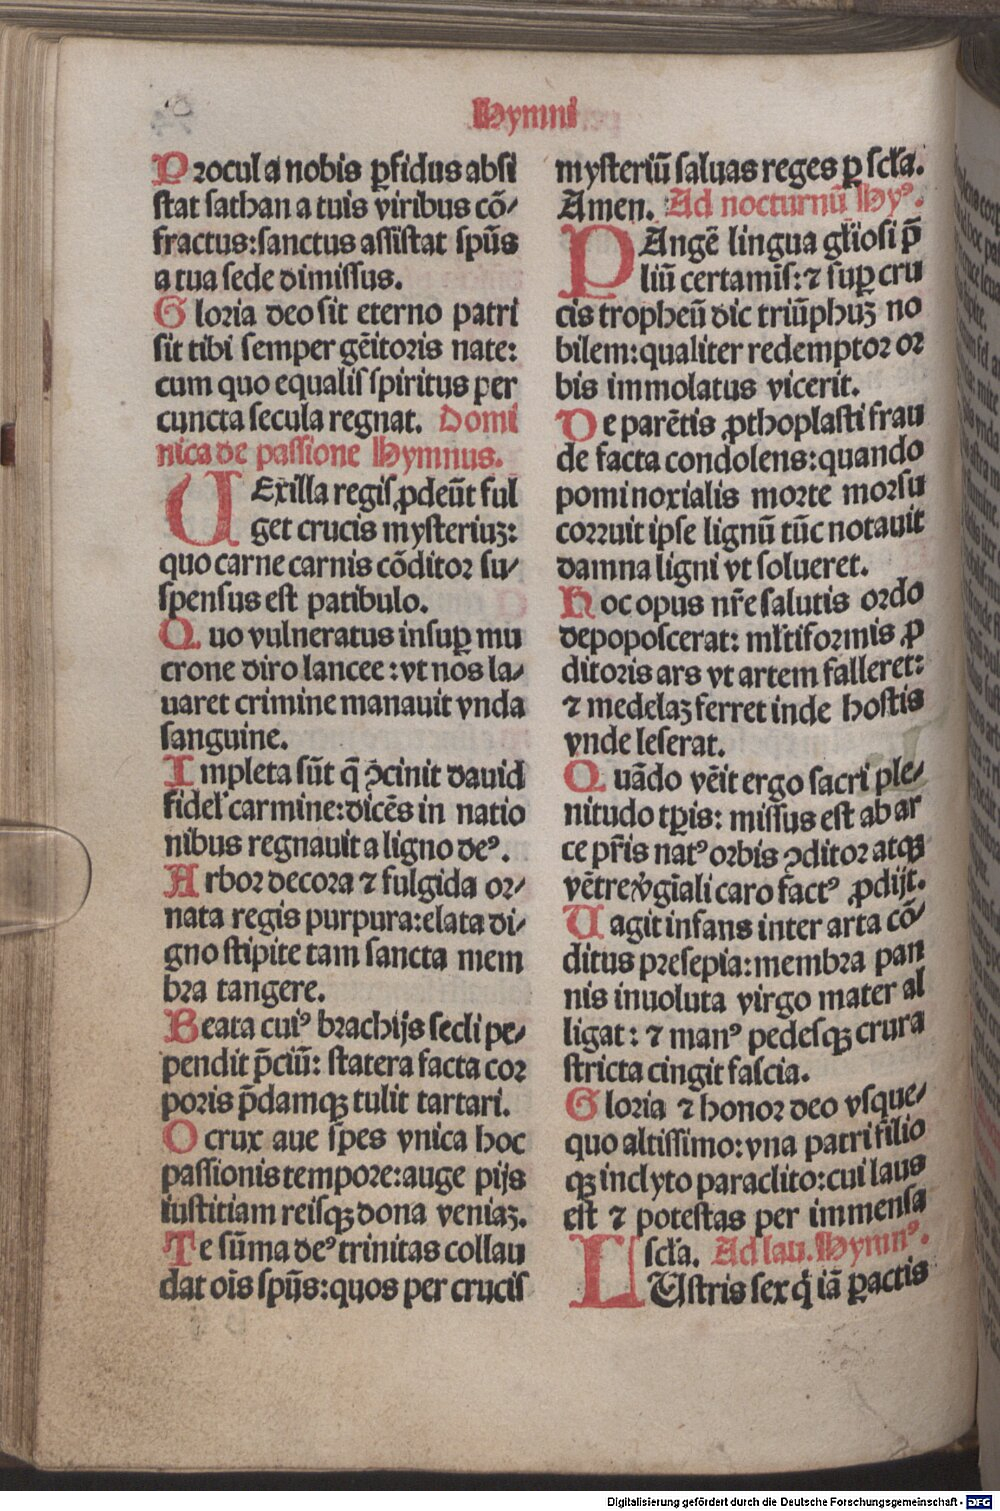 Hymni
Procul a nobis ꝑfidus absi
stat sathan a tuis viribus cō⸗
fractus: sanctus assistat spūs
a tua sede dimissus.
Gloria deo sit eterno patri
sit tibi semper gēitoris nate:
cum quo equalis spiritus per
cuncta secula regnat. Domi
nica de passione Hymnus.
VExilla regis ꝓdeūt ful
get crucis mysteriuꝫ:
quo carne carnis cōditor su⸗
spensus est patibulo.
Quo vulneratus insuꝑ mu
crone diro lancee: vt nos la⸗
uaret crimine manauit vnda
sanguine.
Impleta sūt q̄ ꝯcinit dauid
fidel' carmine: dicēs in natio
nibus regnauit a ligno deꝰ.
Arbor decora ⁊ fulgida or⸗
nata regis purpura: elata di⸗
gno stipite tam sancta mem
bra tangere.
Beata cuiꝰ brachijs secli pe⸗
pendit p̄ciū: statera facta cor
poris p̄damqꝫ tulit tartari.
O crux aue spes vnica hoc
passionis tempore: auge pijs
iustitiam reisqꝫ dona veniaꝫ.
Te sūma deꝰ trinitas collau
dat oīs spūs: quos per crucis
mysteriū saluas reges ꝑ scl'a.
Amen. Ad nocturnū Hyꝰ.
PAngē lingua gl'iosi p̄
liū certamīs: ⁊ suꝑ cru
cis tropheū dic triūphuꝫ no
bilem: qualiter redemptor or
bis immolatus vicerit.
De parētis ꝓthoplasti frau
de facta condolens: quando
pomi noxialis morte morsu
corruit ipse lignū tūc notauit
damna ligni vt solueret.
Hoc opus nr̄e salutis ordo
depoposcerat: ml'tiformis ꝓ
ditoris ars vt artem falleret:
⁊ medelaꝫ ferret inde hostis
vnde leserat.
Quādo vēit ergo sacri ple⸗
nitudo tꝑis: missus est ab ar
ce pr̄is natꝰ orbis ꝯditor atqꝫ
vētre v̓gīali caro factꝰ ꝓdijt.
Vagit infans inter arta cō⸗
ditus presepia: membra pan
nis inuoluta virgo mater al
ligat: ⁊ manꝰ pedesqꝫ crura
stricta cingit fascia.
Gloria ⁊ honor deo vsque⸗
quo altissimo: vna patri filio
qꝫ inclyto paraclito: cui laus
est ⁊ potestas per immensa
scl'a. Ad lau. Hymnꝰ.
LUstris sex q̇ iā ꝑactis
Digitalisierung gefördert durch die Deutsche Forschungsgemeinschaft - DFG